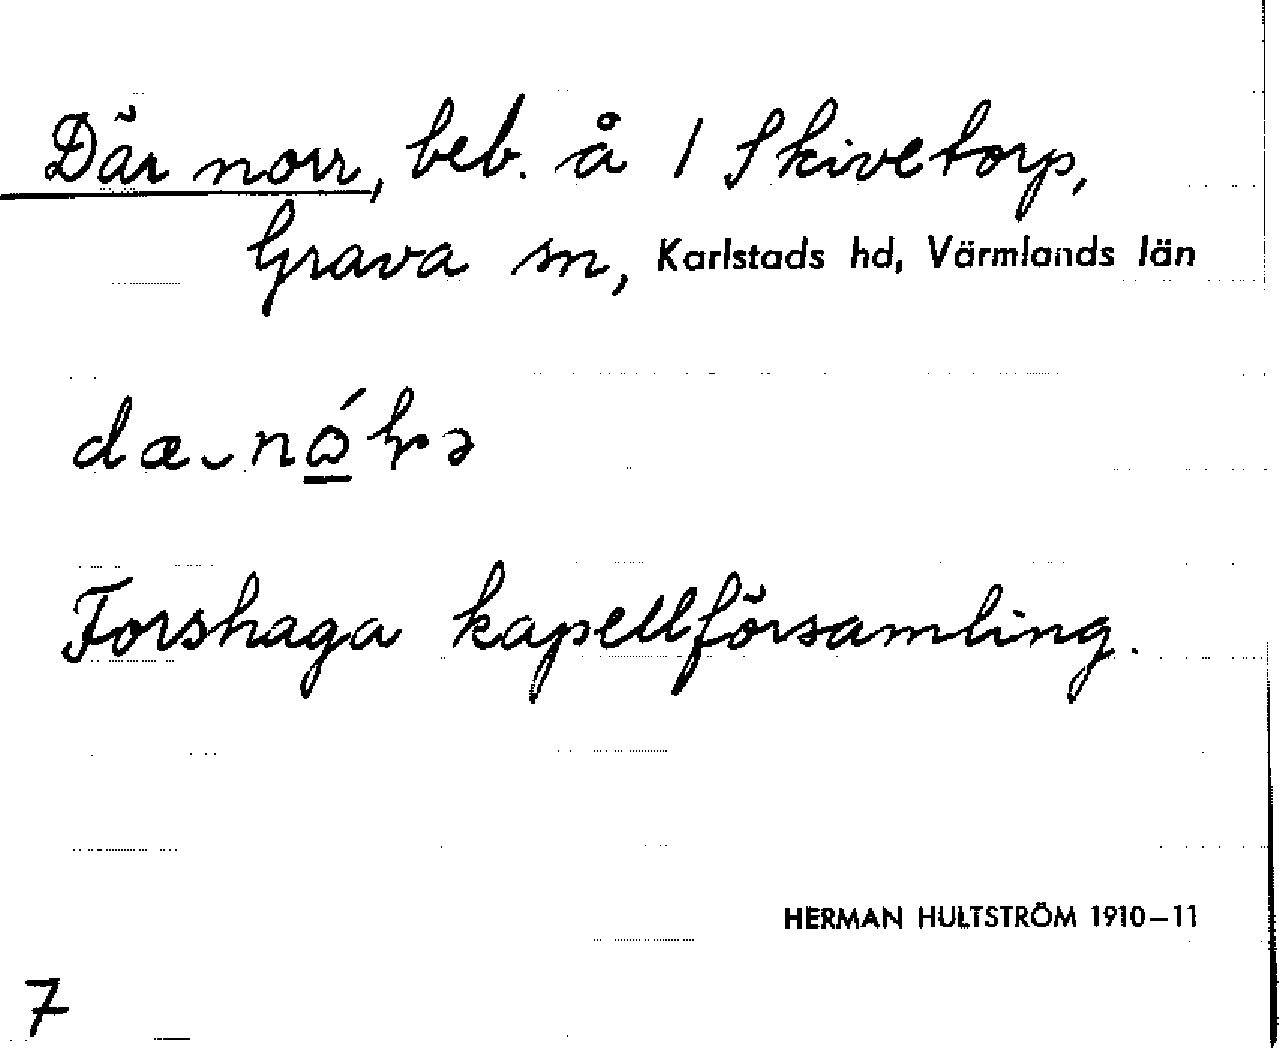 Där norr, beb. å 1 Skivetorp,
Grava sn, Karlstads hd, Värmlands län
Forshaga kapellförsamling.
HERMAN HULTSTRÖM 1910–11
7